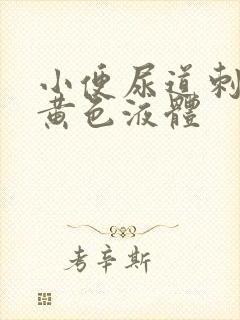 小便尿道刺
黄色液體
考辛斯